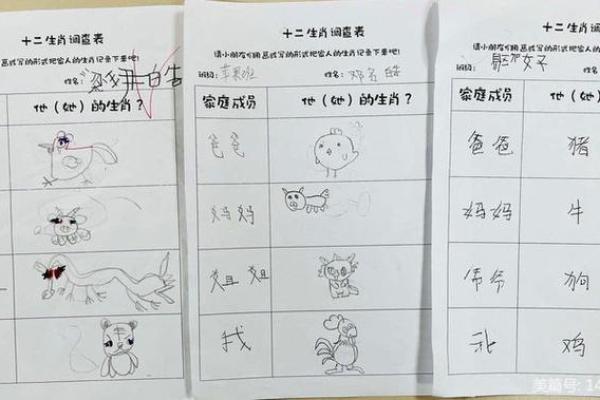 十二生肖调查表
请小朋友们用画或写的形式把家人的生肖记录下来吧!
姓名:
他（她）的生肖？
十二生肖调查表
请小朋友们用画或写的形式把家人的生肖记录下来吧!
班级: 苹果班 姓名:
家庭成员 他（她）的生肖？
爸爸
妈妈
姐姐
我
十二生肖
请小朋友们用画或写的形式把家人的
班级:
家庭成员 他（她）的
爸爸 猪
妈妈 牛
狗
鸡
美篇号: 14